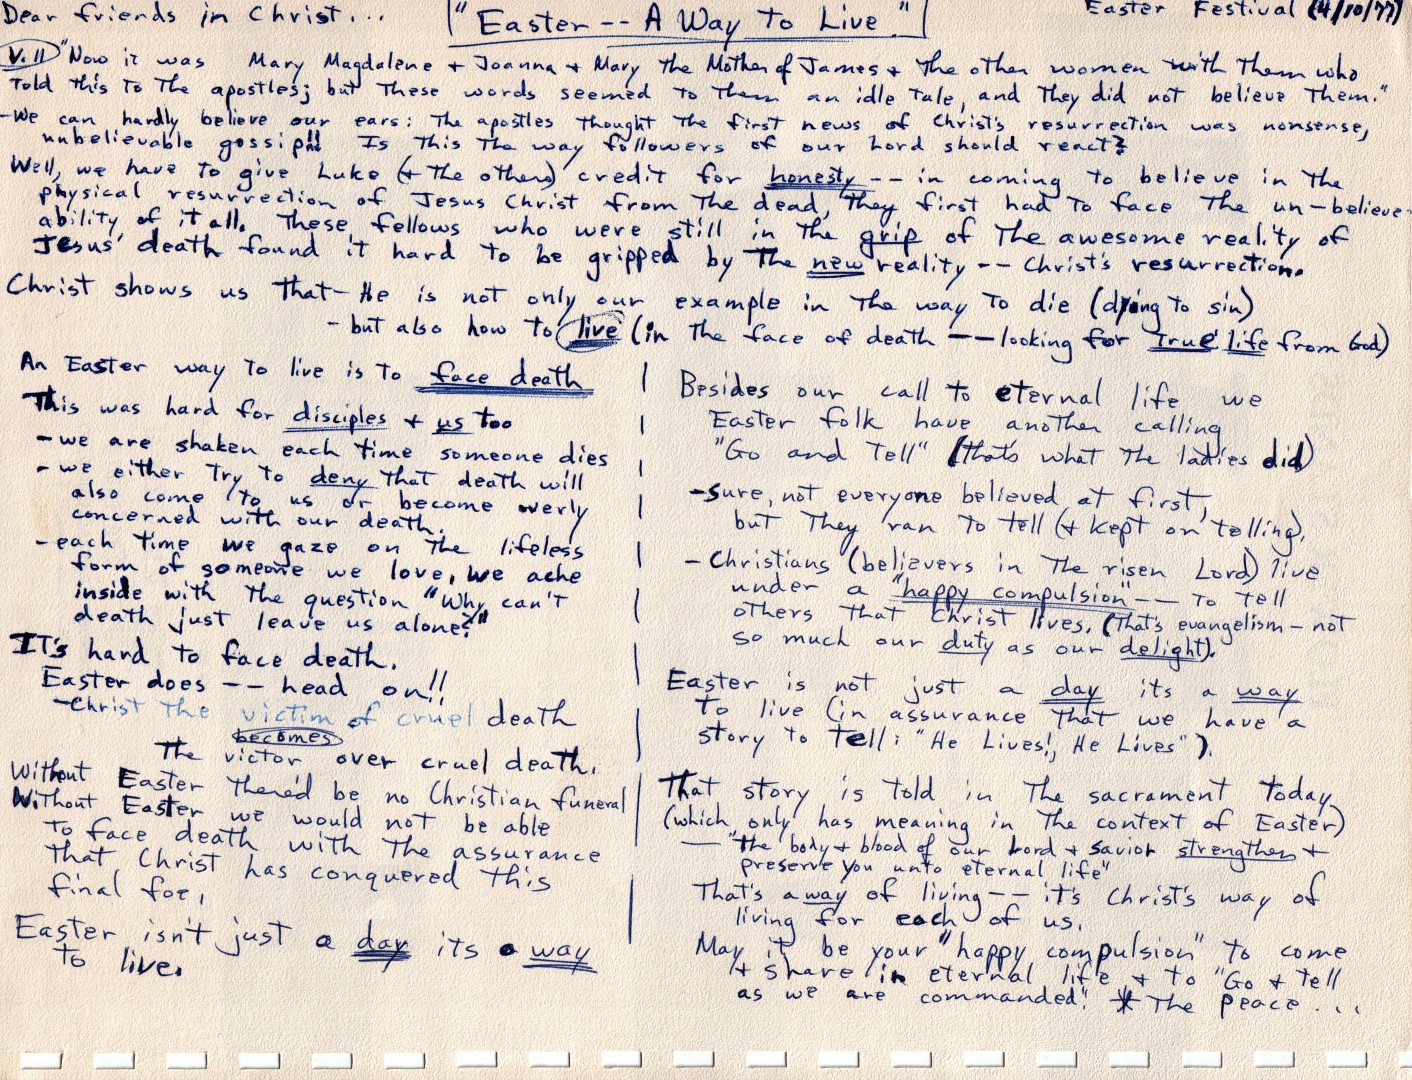 Dear friends in Christ...
"Easter -- A Way To Live"
Easter Festival (4/10/77)
V.11 "Now it was Mary Magdalene + Joanna + Mary the Mother of James + the other women with them who
told this to the apostles; but these words seemed to them an idle tale, and they did not believe them."
-We can hardly believe our ears: the apostles thought the first news of Christ's resurrection was nonsense,
unbelievable gossip!! Is this the way followers of our Lord should react?
Well, we have to give Luke (+ the others) credit for honesty -- in coming to believe in the
physical resurrection of Jesus Christ from the dead, they first had to face the un-believe-
ability of it all. These fellows who were still in the grip of the awesome reality of
Jesus' death found it hard to be gripped by the new reality -- Christ's resurrection.
Christ shows us that - He is not only our example in the way to die (dying to sin)
- but also how to live (in the face of death -- looking for true life from God)
An Easter way to live is to face death
This was hard for disciples + us too
- we are shaken each time someone dies
- we either try to deny that death will
also come to us or become overly
concerned with our death.
- each time we gaze on the lifeless
form of someone we love, we ache
inside with the question "Why can't
death just leave us alone?"
It's hard to face death.
Easter does -- head on!!
-Christ the victim of cruel death
becomes
the victor over cruel death.
Without Easter there'd be no Christian funeral
Without Easter we would not be able
to face death with the assurance
that Christ has conquered this
final foe,
Easter isn't just a day its a way
to live.
Besides our call to eternal life we
Easter folk have another calling
"Go and Tell" (that's what the ladies did)
-sure, not everyone believed at first,
but they ran to tell (+ kept on telling).
- Christians (believers in the risen Lord) live
under a "happy compulsion" -- to tell
others that Christ lives. (That's evangelism - not
so much our duty as our delight).
Easter is not just a day its a way
to live (in assurance that we have a
story to tell: "He Lives!, He Lives").
That story is told in the sacrament today
(which only has meaning in the context of Easter)
— "the body + blood of our Lord + Savior strengthen +
preserve you unto eternal life"
That's a way of living -- it's Christ's way of
living for each of us.
May it be your "happy compulsion" to come
+ share in eternal life + to "Go + tell
as we are commanded." * The peace ...